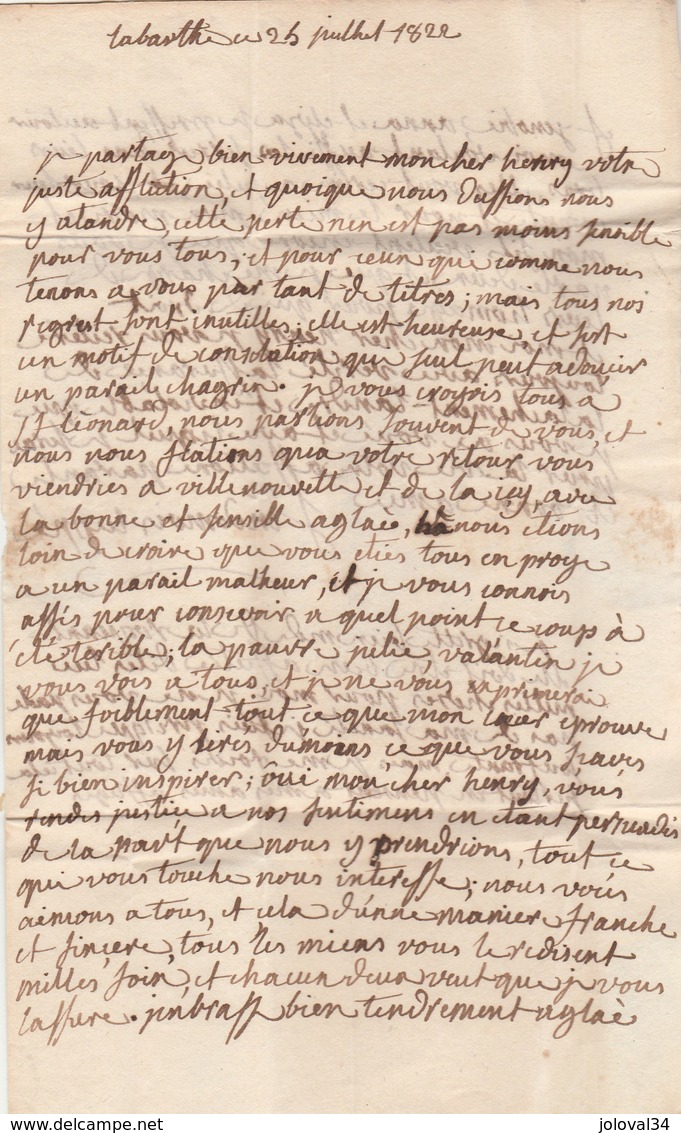 labarthe ce 25 juillet 1822
je partage bien vivement mon cher henry votre
juste affliction, et quoique nous dussions nous
y atandre, cette perte n'en est pas moins sensible
pour vous tous, et pour ceux qui comme nous
tenons a vous par tant de titres; mais tous nos
regrest sont inutilles, elle est heureuse, et s'est
un motif de consolation qui seul peut adoucir
un parail chagrin. je vous croyois tous a
st Léonard, nous parlions souvent de vous, et
nous nous flations qua votre retour vous
viendriés a villenouvelle et de la icy, avec
la bonne et sensille aglaé, hà nous etions
loin de croire que vous eties tous en proye
a un parail malheur, et je vous connois
assés pour consevoir a quel point ce coup à
été terible; la pauvre julie, valantin je
vous vois a tous, et je ne vous exprimerai
que foiblement tout ce que mon cœur eprouve
mais vous y lirés dumoins ce que vous savés
si bien inspirer; oui mon cher henry, vous
rendés justice a nos sentimens en etant persuadés
de la part que nous y prendrions, tout ce
qui vous touche nous interesse; nous vous
aimons a tous, et cela d'unne manière franche
et sincere, tous les miens vous le redisent
milles foin, et chacun deux veut que je vous
lassure. j'inbrasse bien tendrement aglaé
joloval34